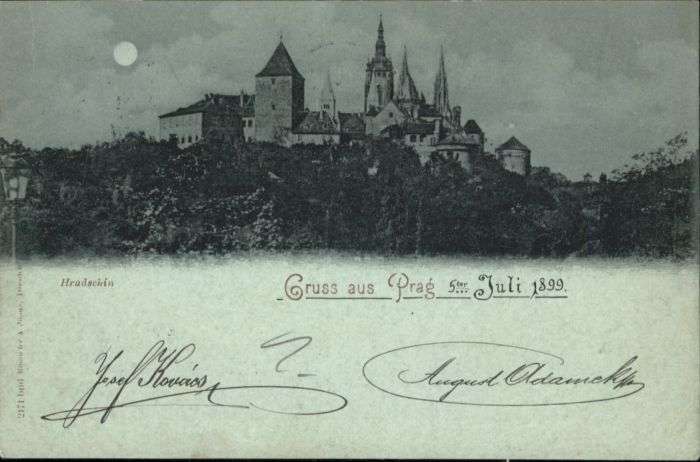 Hradschin
Gruss aus Prag 5ter Juli 1899.
Josef Kovács
August Adamek